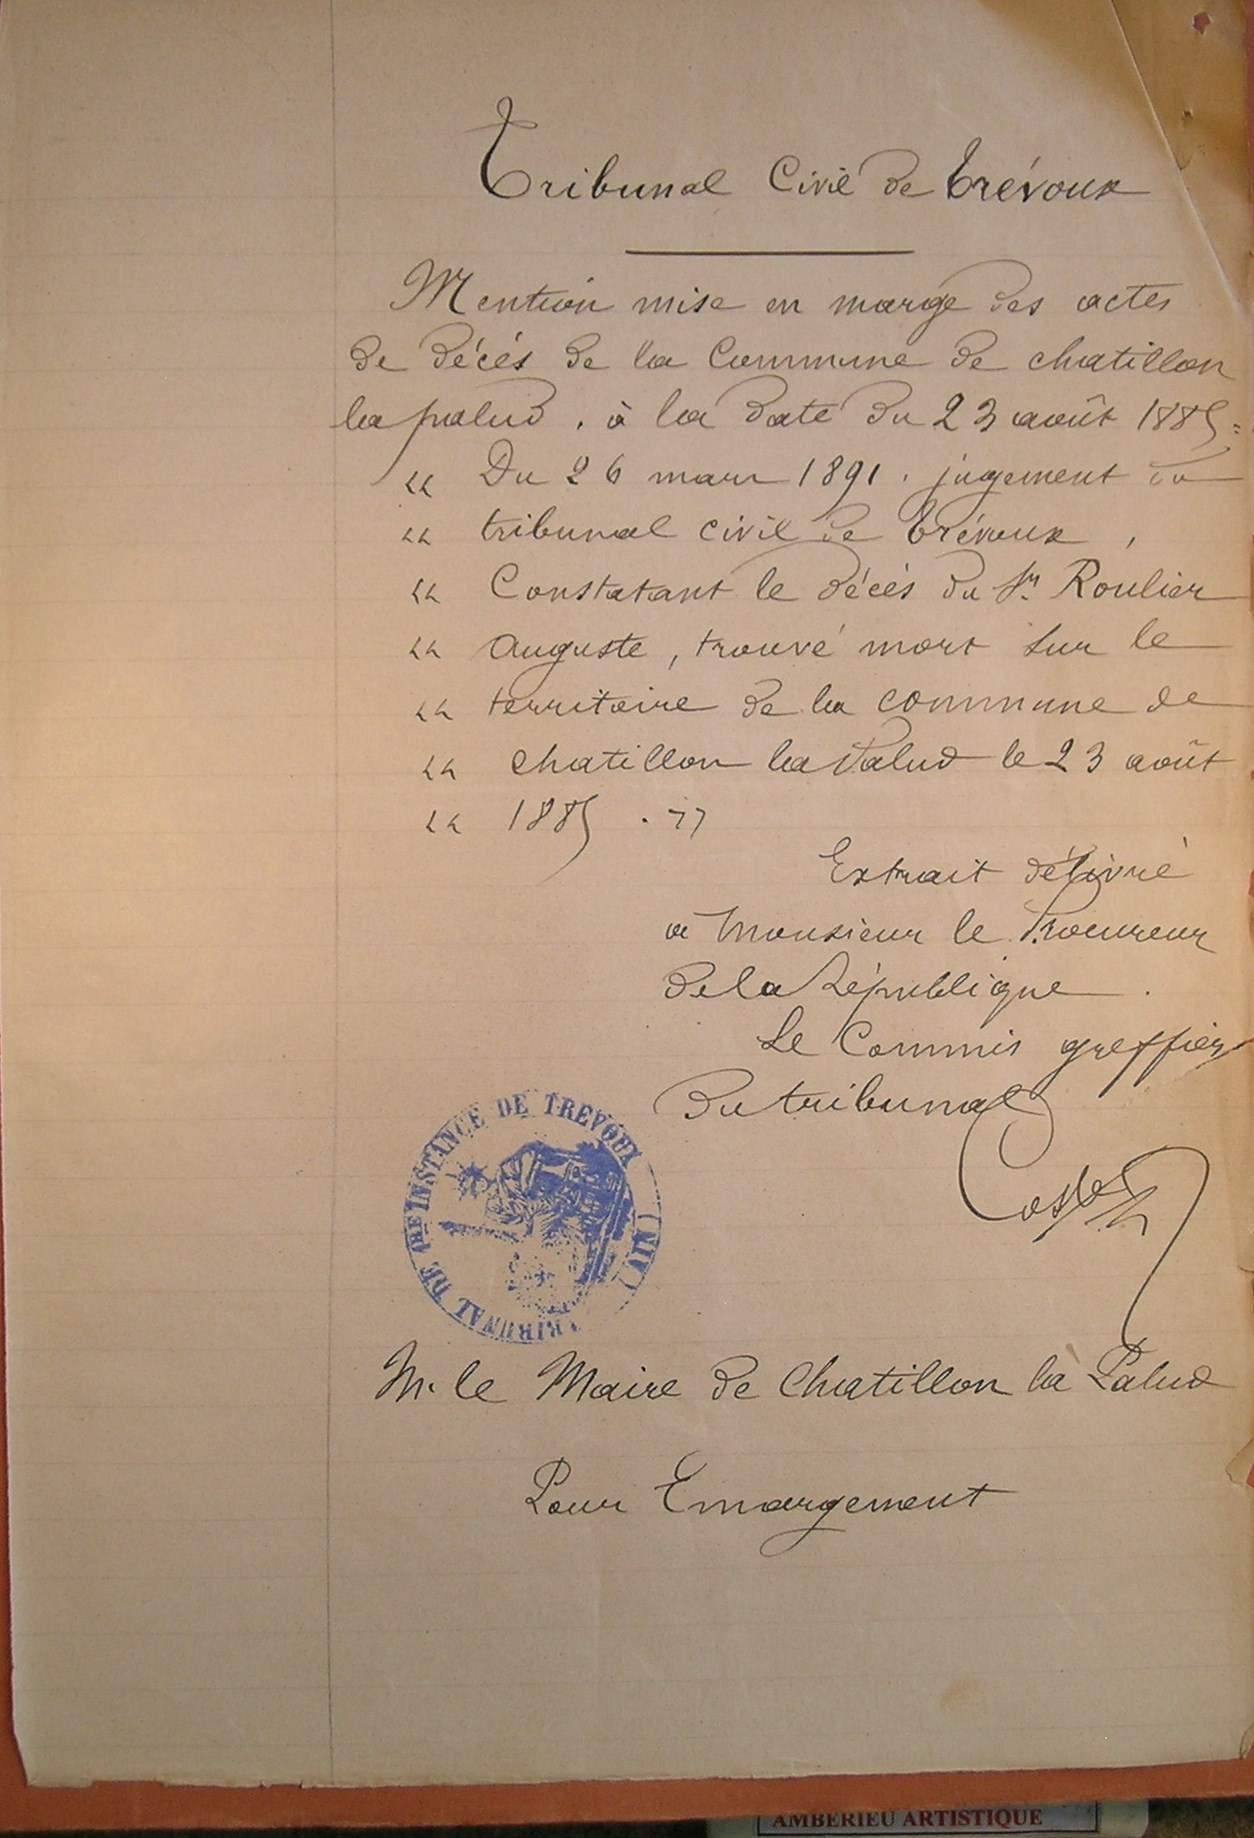 Tribunal Civil de Trévoux
Mention mise en marge des actes
de décés de la Commune de chatillon
la palud . à la date du 23 août 1885 =
" Du 26 mars 1891 . jugement du
" tribunal civil de Trévoux ,
" Constatant le décés du Sr. Roulier
" auguste , trouvé mort sur le
" territoire de la commune de
" chatillon la Palud le 23 août
" 1885 . "
Extrait délivré
a Monsieur le Procureur
de la République .
Le Commis greffier
du tribunal
TRIBUNAL DE 1RE INSTANCE DE TREVOUX (AIN)
M. le Maire de Chatillon la Palud
Pour Emargement
AMBERIEU ARTISTIQUE